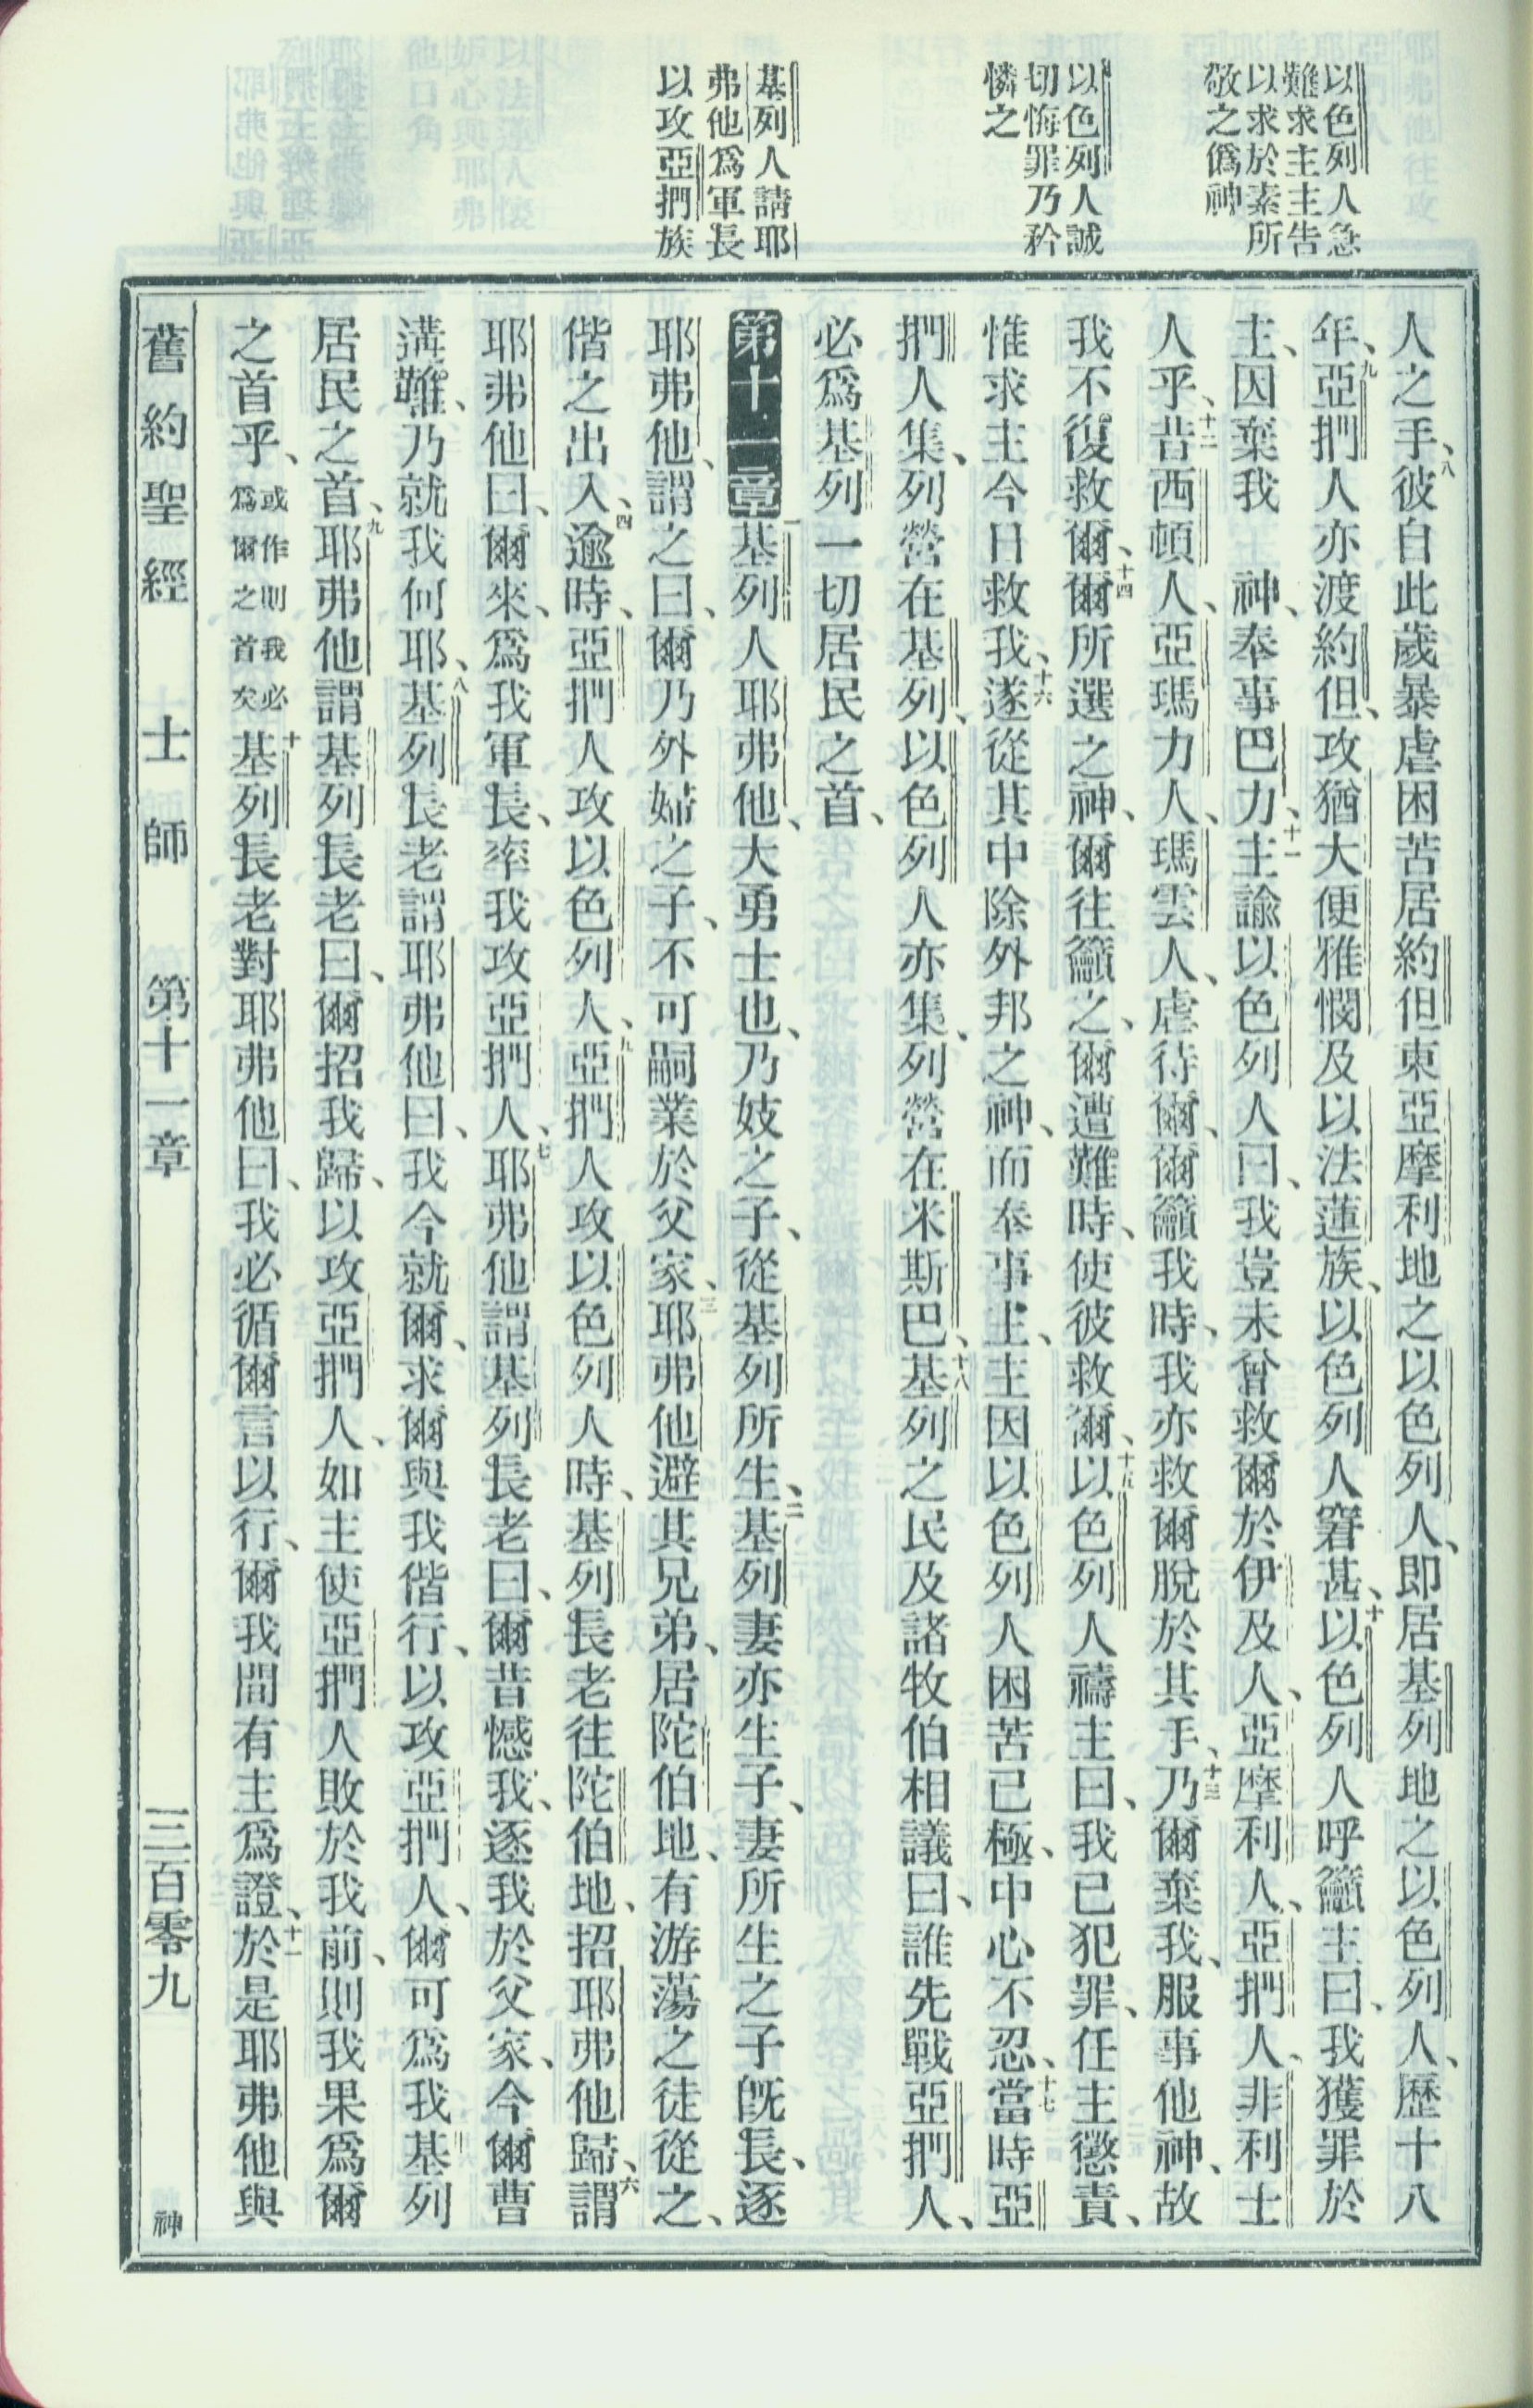 以色列人急
難求主主告
以求於素所
敬之僞神
以色列人誠
切悔罪乃矜
憐之
基列人請耶
弗他爲軍長
以攻亞捫族
人之手、八彼自此歲暴虐困苦居約但東亞摩利地之以色列人、即居基列地之以色列人、歷十八
年、九亞捫人亦渡約但、攻猶大便雅憫及以法蓮族、以色列人窘甚、十以色列人呼籲主曰、我獲罪於
主、因棄我　神、奉事巴力、十一主諭以色列人曰、我豈未曾救爾於伊及人、亞摩利人、亞捫人、非利士
人乎、十二昔西頓人、亞瑪力人、瑪雲人、虐待爾、爾籲我時、我亦救爾脫於其手、十三乃爾棄我、服事他神、故
我不復救爾、十四爾所選之神、爾往籲之、爾遭難時、使彼救爾、十五以色列人禱主曰、我已犯罪、任主懲責、
惟求主今日救我、十六遂從其中除外邦之神、而奉事主、主因以色列人困苦已極、中心不忍、十七當時亞
捫人集、列營在基列、以色列人亦集、列營在米斯巴、十八基列之民及諸牧伯相議曰、誰先戰亞捫人、
必爲基列一切居民之首、
第十一章一基列人耶弗他、大勇士也、乃妓之子、從基列所生、二基列妻亦生子、妻所生之子旣長、逐
耶弗他、謂之曰、爾乃外婦之子、不可嗣業於父家、三耶弗他避其兄弟、居陀伯地、有游蕩之徒從之、
偕之出入、四逾時、亞捫人攻以色列人、五亞捫人攻以色列人時、基列長老往陀伯地、招耶弗他歸、六謂
耶弗他曰、爾來、爲我軍長、率我攻亞捫人、七耶弗他謂基列長老曰、爾昔憾我、逐我於父家、今爾曹
遘難、乃就我何耶、八基列長老謂耶弗他曰、我今就爾、求爾與我偕行、以攻亞捫人、爾可爲我基列
居民之首、九耶弗他謂基列長老曰、爾招我歸、以攻亞捫人、如主使亞捫人敗於我前、則我果爲爾
之首乎、或作則我必爲爾之首矣十基列長老對耶弗他曰、我必循爾言以行、爾我間有主爲證、十一於是耶弗他與
舊約聖經　士師　第十一章　三百零九　神